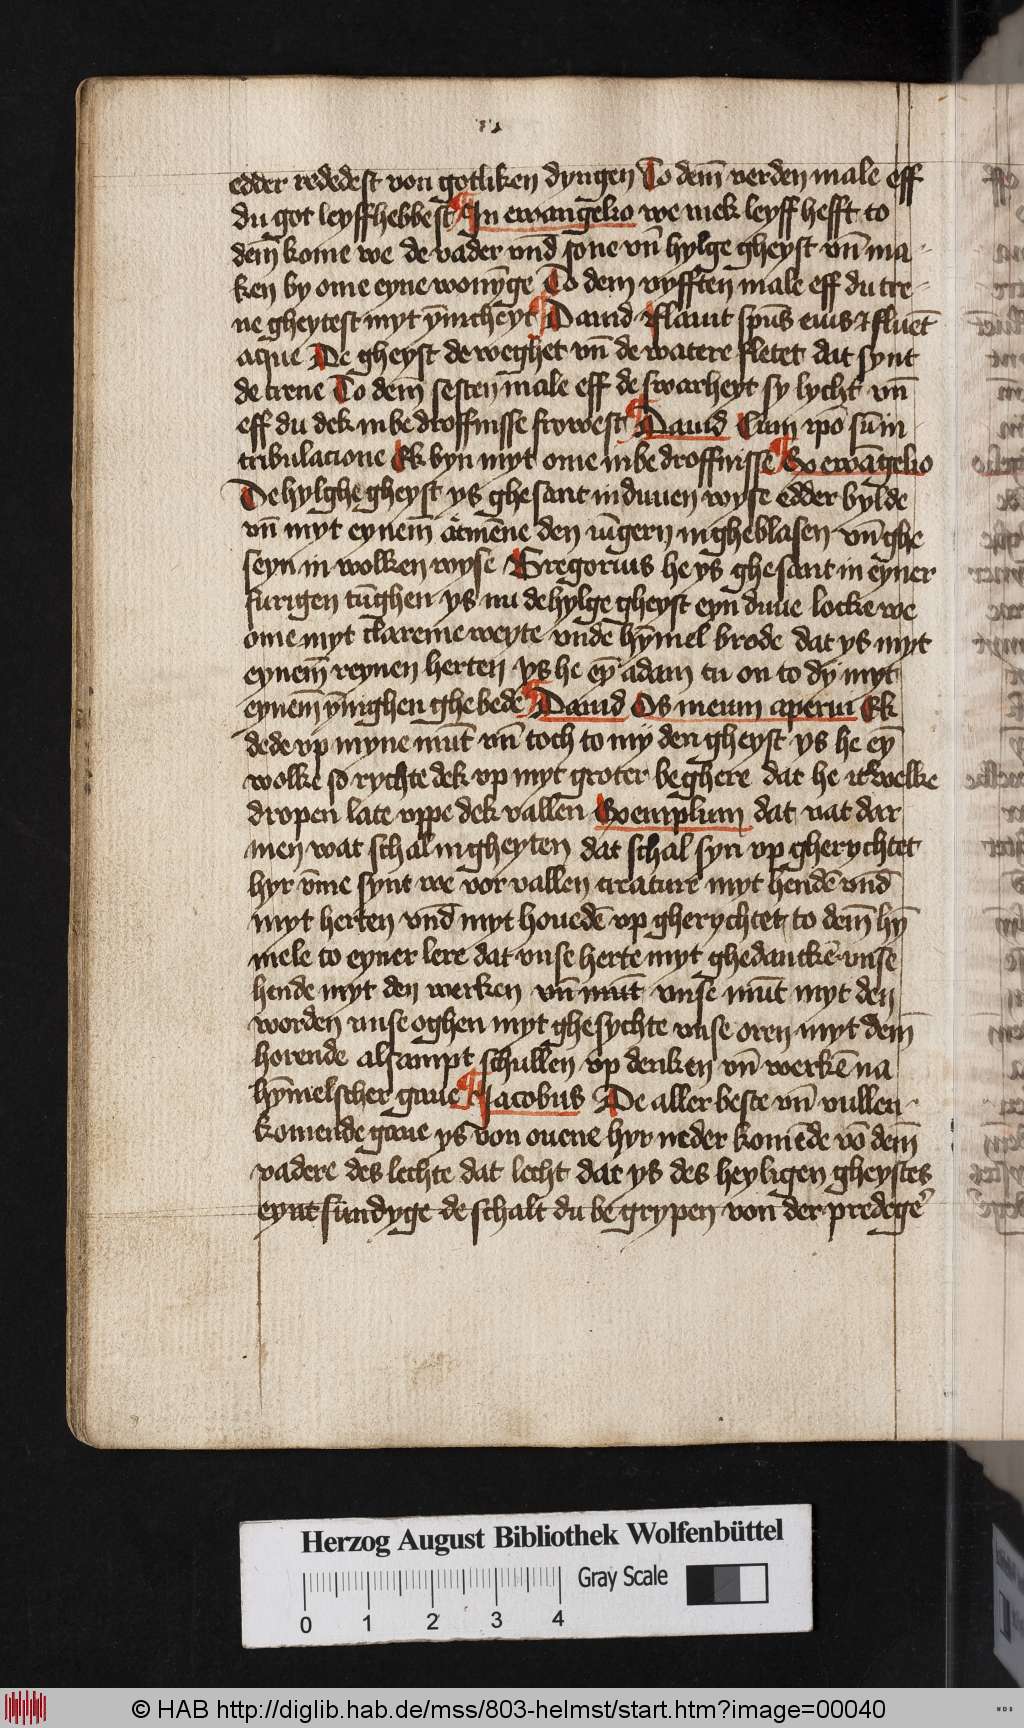 edder rededest von gotliken dyngen To dem̄ verden male eff
du got leyff hebbest In ewangelio we mek leyff hefft to
dem̄ kome we de vader vn̄d sone vn̄ hylge gheyst vn̄ ma-
ken by ome eyne wonȳge To dem vyfften male eff du tre-
ne gheytest myt ȳnicheyt Dauid Flauit sp̄us eius & fluēt
aque De gheyst de weghet vn̄ de watere fletet dat synt
de trene To dem̄ sesten male eff de swarheyt sy lycht vn̄
eff du dek in bedroffnisse frowest Dauid Cum ip̄o sūm in
tribulacione Ek byn myt ome in bedroffnisse Ex ewāgelio
De hylghe gheyst ys ghesant in duuen wyse edder bylde
vn̄ myt eynem̄ atmēne den iūgern in gheblasen vn̄ ghe
seyn in wolken wyse Gregorius he ys ghesant in eyner
furigen tūghen ys nu de hylge gheyst eyn duue locke we
ome myt clareme weyte vnde hȳmel brode dat ys myt
eynem̄ reynen herten ys he eȳ adam tu on to dy myt
eynem̄ ȳnighen ghebede Dauid Os meum aperui Ek
dede vp myne mūt vn̄ toch to my den gheyst ys he eȳ
wolke so rychte dek vp myt groter beghere dat he itwelke
dropen late vppe dek vallen Exemplum dat vat dar
men wat schal in gheyten dat schal syn vp gherychtet
hyr v̄me synt we vor vallen creature myt hendē vn̄d
myt herten vn̄d myt houedē vp gherychtet to dem̄ hȳ
mele to eyner lere dat vnse herte myt ghedanckē vnse
hende myt den werken vn̄ mūt vnse mūt myt den
worden vnse oghen myt ghesychte vnse oren myt dem̄
horende alsampt schullen vp denken vn̄ werkē na
hȳmelscher gaue Jacobus De aller beste vn̄ vullen-
komende gaue ys von ouene hyr neder komēde vō dem̄
vadere des lechte dat lecht dat ys des heyligen gheystes
eynt fundyge de schalt du begrypen von der predege
Herzog August Bibliothek Wolfenbüttel
Gray Scale
0 1 2 3 4
© HAB http://diglib.hab.de/mss/803-helmst/start.htm?image=00040